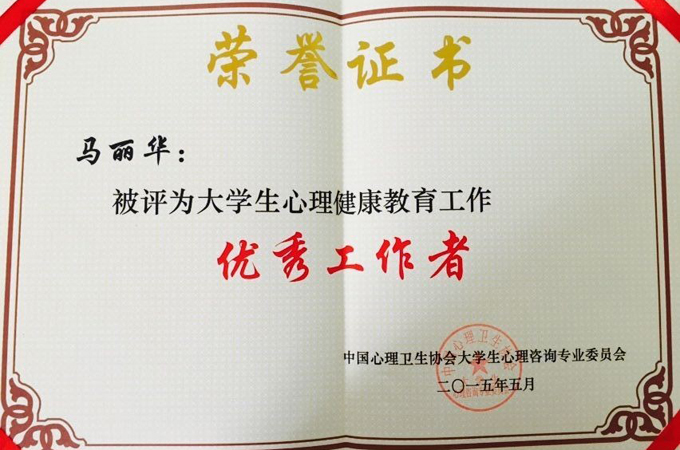 荣誉证书
马丽华：
被评为大学生心理健康教育工作
优秀工作者
中国心理卫生协会大学生心理咨询专业委员会
二〇一五年五月
中国心理卫生协会